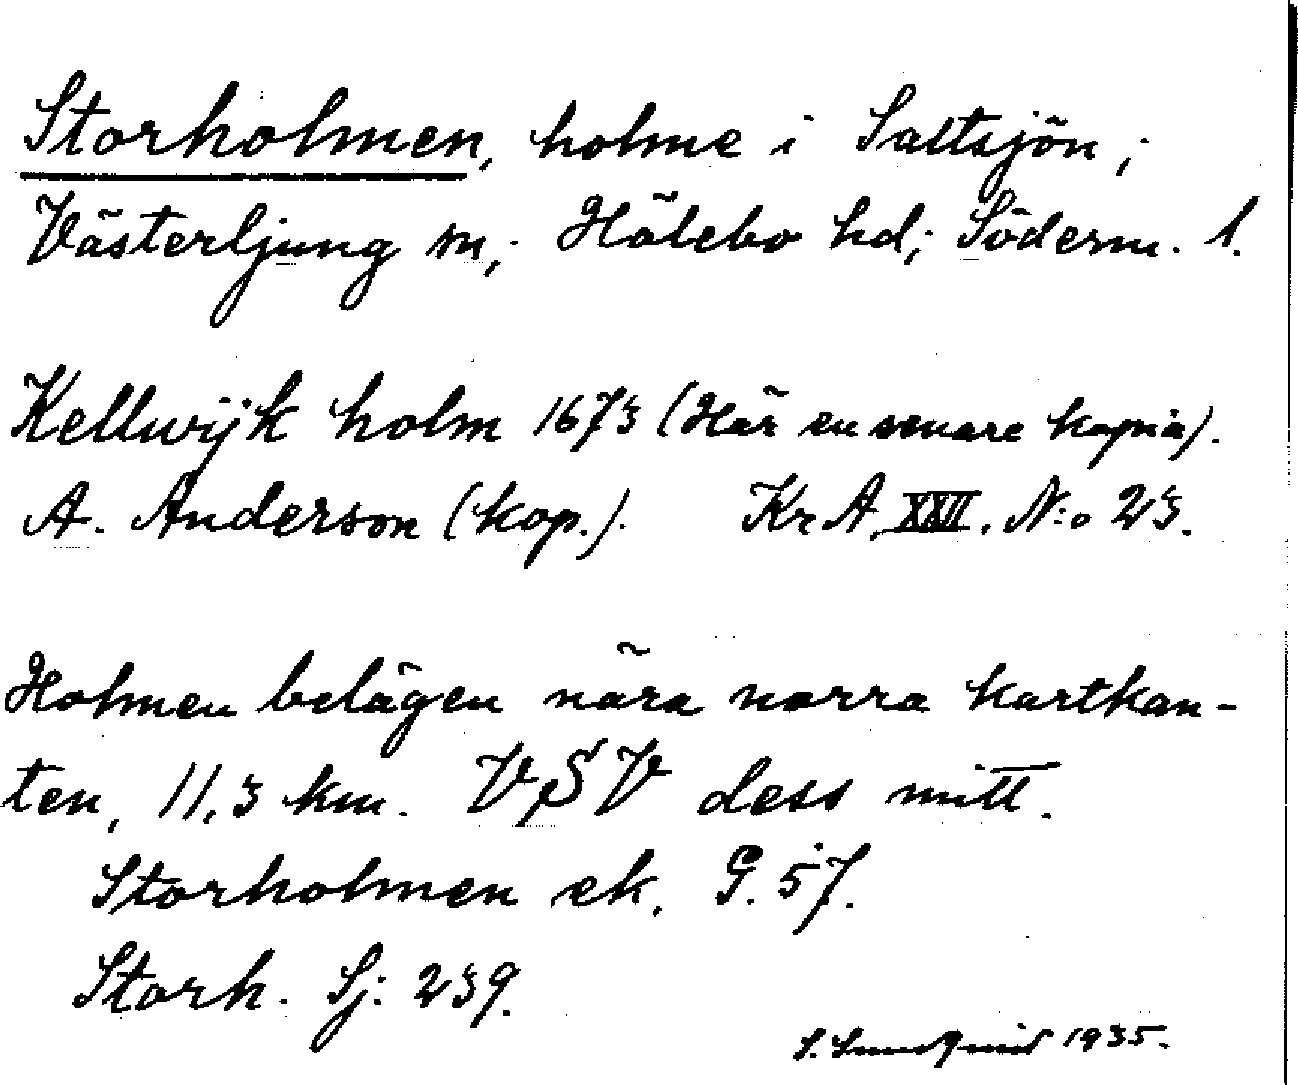 Storholmen, holme i Saltsjön,
Västerljung sn, Hölebo hd; Söderm. l.
Kellwijk holm 1673 (Här en senare kopia).
A. Anderson (kop.). Kr A. XXII. N:o 23.
Holmen belägen nära norra kartkan-
ten, 11,3 km. VSV dess mitt.
Storholmen ek. G. 57.
Storh. Sj: 239.
S. Lundquist 1935.